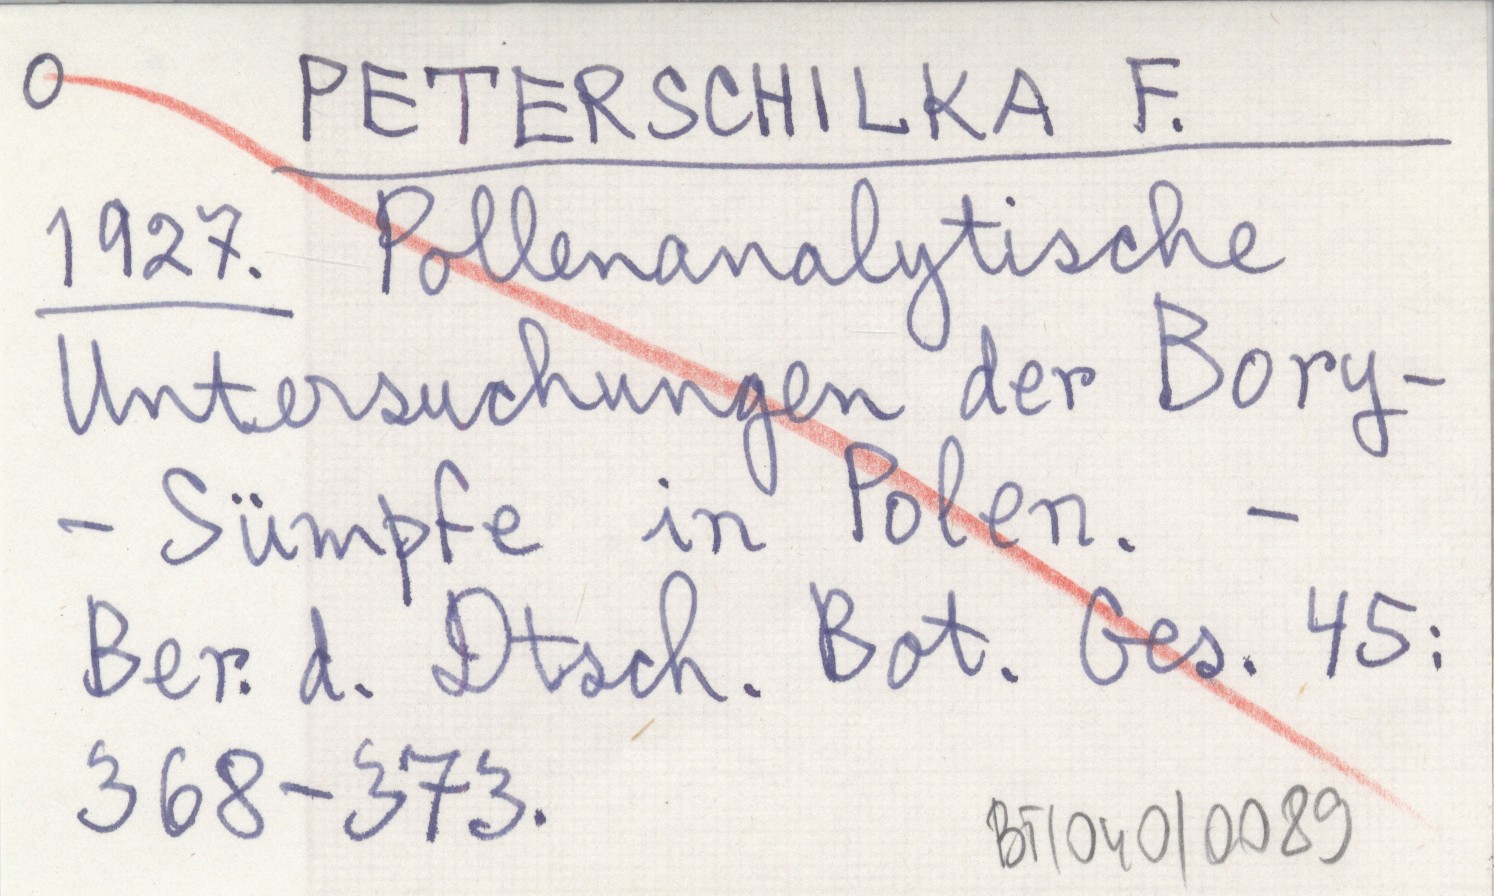 O PETERSCHILKA F.
1927. Pollenanalytische
Untersuchungen der Bory-
- Sümpfe in Polen. -
Ber. d. Dtsch. Bot. Ges. 45:
368-373.
BT/040/0089